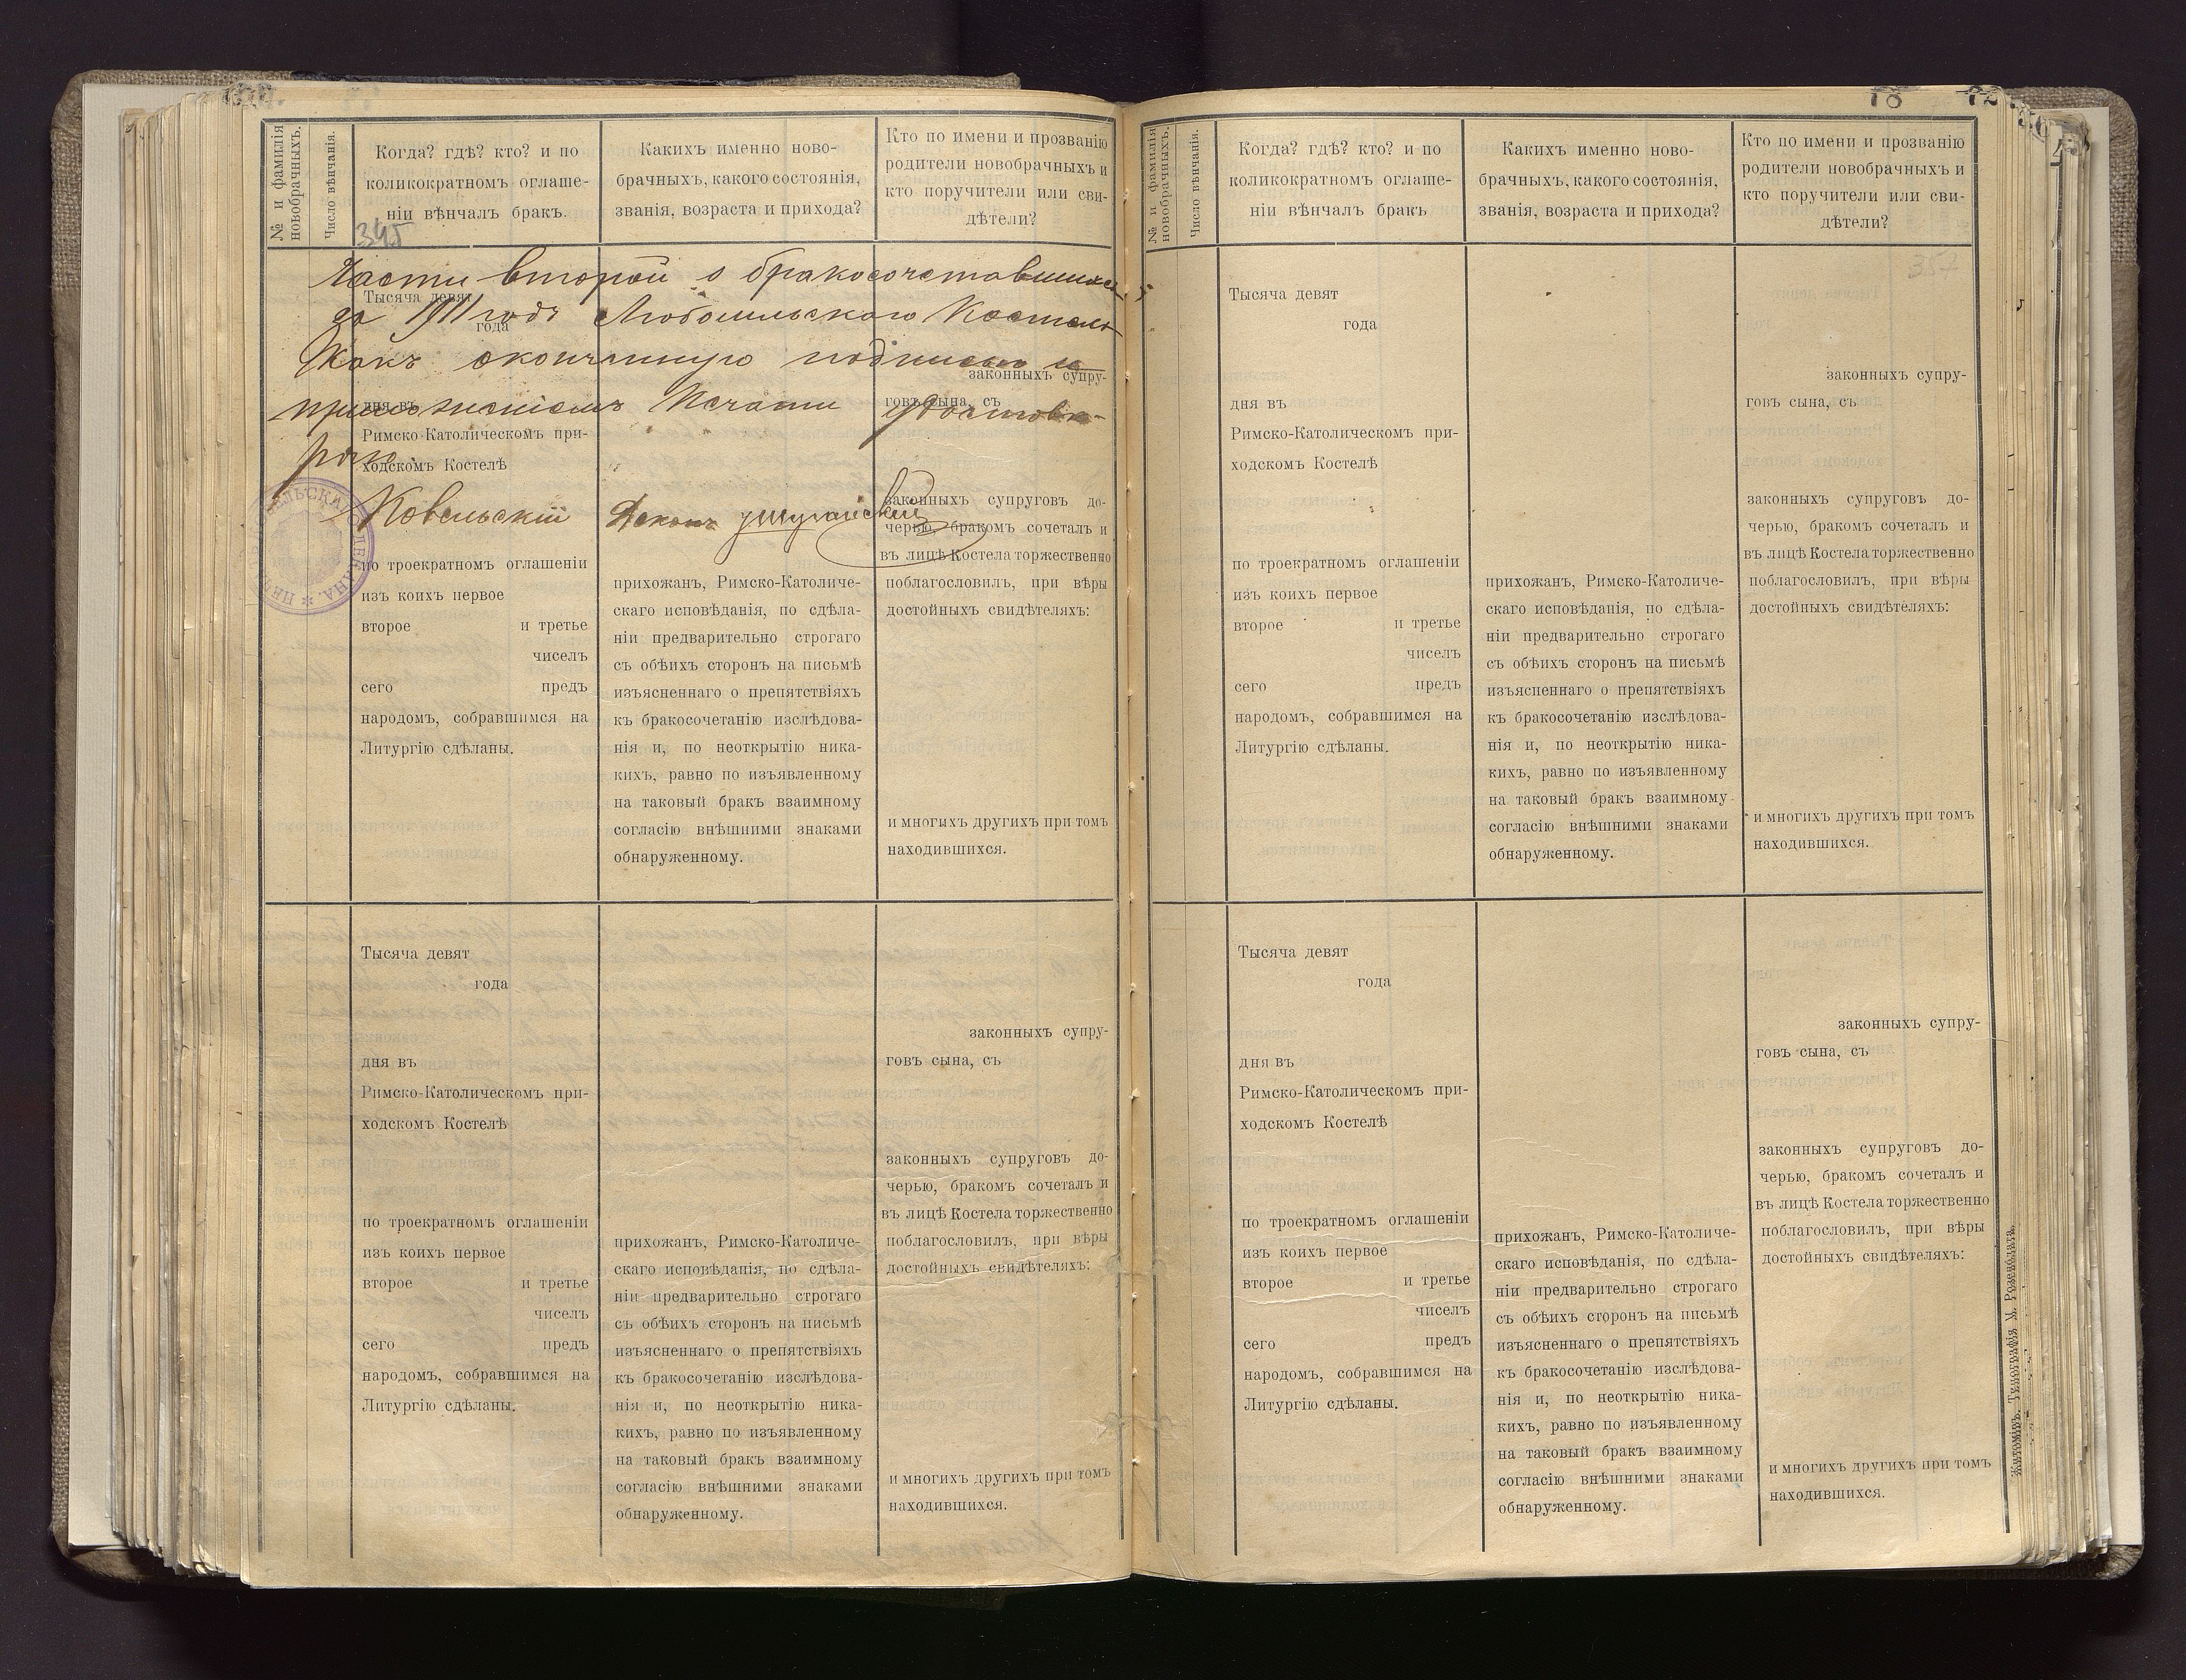 № и фамилія новобрачныхъ.
Число вѣнчанія.
Когда? гдѣ? кто? и по
коликократномъ оглаше-
ніи вѣнчалъ бракъ.
Какихъ именно ново-
брачныхъ, какого состоянія,
званія, возраста и прихода?
Кто по имени и прозванію
родители новобрачныхъ и
кто поручители или сви-
дѣтели?
345
Части второй о бракосочетавшихся
за 1911 годъ Любомльскаго Костела
Какъ оконченную подписью и
приложеніемъ Печати удостовѣ-
ряю.
Ковельскій Деканъ
Тысяча девят
года
дня въ
Римско-Католическомъ при-
ходскомъ Костелѣ
по троекратномъ оглашеніи
изъ коихъ первое
второе и третье
чиселъ
сего предъ
народомъ, собравшимся на
Литургію сдѣланы.
прихожанъ, Римско-Католиче-
скаго исповѣданія, по сдѣла-
ніи предварительно строгаго
съ обѣихъ сторонъ на письмѣ
изъясненнаго о препятствіяхъ
къ бракосочетанію изслѣдова-
нія и, по неоткрытію ника-
кихъ, равно по изъявленному
на таковый бракъ взаимному
согласію внѣшними знаками
обнаруженному.
законныхъ супру-
говъ сына, съ
законныхъ супруговъ до-
черью, бракомъ сочеталъ и
въ лицѣ Костела торжественно
поблагословилъ, при вѣры
достойныхъ свидѣтеляхъ:
и многихъ другихъ при томъ
находившихся.
Тысяча девят
года
дня въ
Римско-Католическомъ при-
ходскомъ Костелѣ
по троекратномъ оглашеніи
изъ коихъ первое
второе и третье
чиселъ
сего предъ
народомъ, собравшимся на
Литургію сдѣланы.
прихожанъ, Римско-Католиче-
скаго исповѣданія, по сдѣла-
ніи предварительно строгаго
съ обѣихъ сторонъ на письмѣ
изъясненнаго о препятствіяхъ
къ бракосочетанію изслѣдова-
нія и, по неоткрытію ника-
кихъ, равно по изъявленному
на таковый бракъ взаимному
согласію внѣшними знаками
обнаруженному.
законныхъ супру-
говъ сына, съ
законныхъ супруговъ до-
черью, бракомъ сочеталъ и
въ лицѣ Костела торжественно
поблагословилъ, при вѣры
достойныхъ свидѣтеляхъ:
и многихъ другихъ при томъ
находившихся.
78 72
№ и фамилія новобрачныхъ.
Число вѣнчанія.
Когда? гдѣ? кто? и по
коликократномъ оглаше-
ніи вѣнчалъ бракъ
Какихъ именно ново-
брачныхъ, какого состоянія,
званія, возраста и прихода?
Кто по имени и прозванію
родители новобрачныхъ и
кто поручители или сви-
дѣтели?
357
Тысяча девят
года
дня въ
Римско-Католическомъ при-
ходскомъ Костелѣ
по троекратномъ оглашеніи
изъ коихъ первое
второе и третье
чиселъ
сего предъ
народомъ, собравшимся на
Литургію сдѣланы.
прихожанъ, Римско-Католиче-
скаго исповѣданія, по сдѣла-
ніи предварительно строгаго
съ обѣихъ сторонъ на письмѣ
изъясненнаго о препятствіяхъ
къ бракосочетанію изслѣдова-
нія и, по неоткрытію ника-
кихъ, равно по изъявленному
на таковый бракъ взаимному
согласію внѣшними знаками
обнаруженному.
законныхъ супру-
говъ сына, съ
законныхъ супруговъ до-
черью, бракомъ сочеталъ и
въ лицѣ Костела торжественно
поблагословилъ, при вѣры
достойныхъ свидѣтеляхъ:
и многихъ другихъ при томъ
находившихся.
Тысяча девят
года
дня въ
Римско-Католическомъ при-
ходскомъ Костелѣ
по троекратномъ оглашеніи
изъ коихъ первое
второе и третье
чиселъ
сего предъ
народомъ, собравшимся на
Литургію сдѣланы.
прихожанъ, Римско-Католиче-
скаго исповѣданія, по сдѣла-
ніи предварительно строгаго
съ обѣихъ сторонъ на письмѣ
изъясненнаго о препятствіяхъ
къ бракосочетанію изслѣдова-
нія и, по неоткрытію ника-
кихъ, равно по изъявленному
на таковый бракъ взаимному
согласію внѣшними знаками
обнаруженному.
законныхъ супру-
говъ сына, съ
законныхъ супруговъ до-
черью, бракомъ сочеталъ и
въ лицѣ Костела торжественно
поблагословилъ, при вѣры
достойныхъ свидѣтеляхъ:
и многихъ другихъ при томъ
находившихся.
Житоміръ. Типографія М. Розенодата.